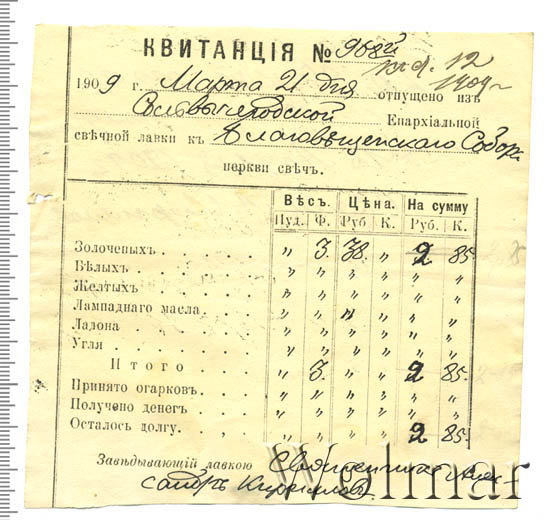 КВИТАНЦІЯ № 968й
12
1909 г. Марта 21 дня отпущено изъ 1909 г
Сольвычегодской Епархіальной
свѣчной лавки къ Благовѣщенскаго Собора
церкви свѣч.
Вѣсъ. Цѣна. На сумму
Пуд. Ф. Руб К. Руб. К.
Золоченыхъ . . . . . „ 3. 38. „ 2 85.
Бѣлыхъ . . . . . . „ „ „ „ „ „
Желтыхъ . . . . . . „ „ „ „ „ „
Лампаднаго масла . . . „ „ „ „ „ „
Ладона . . . . . . „ „ „ „ „ „
Угля . . . . . . . „ „ „ „ „ „
Итого . . . „ 3. „ „ 2 85.
Принято огарковъ . . . „ „ „ „ „ „
Получено денегъ . . . . „ „ „ „ „ „
Осталось долгу . . . . „ „ „ „ 2 85.
Завѣдывающій лавкою Священникъ
Кириллов
Wolmar